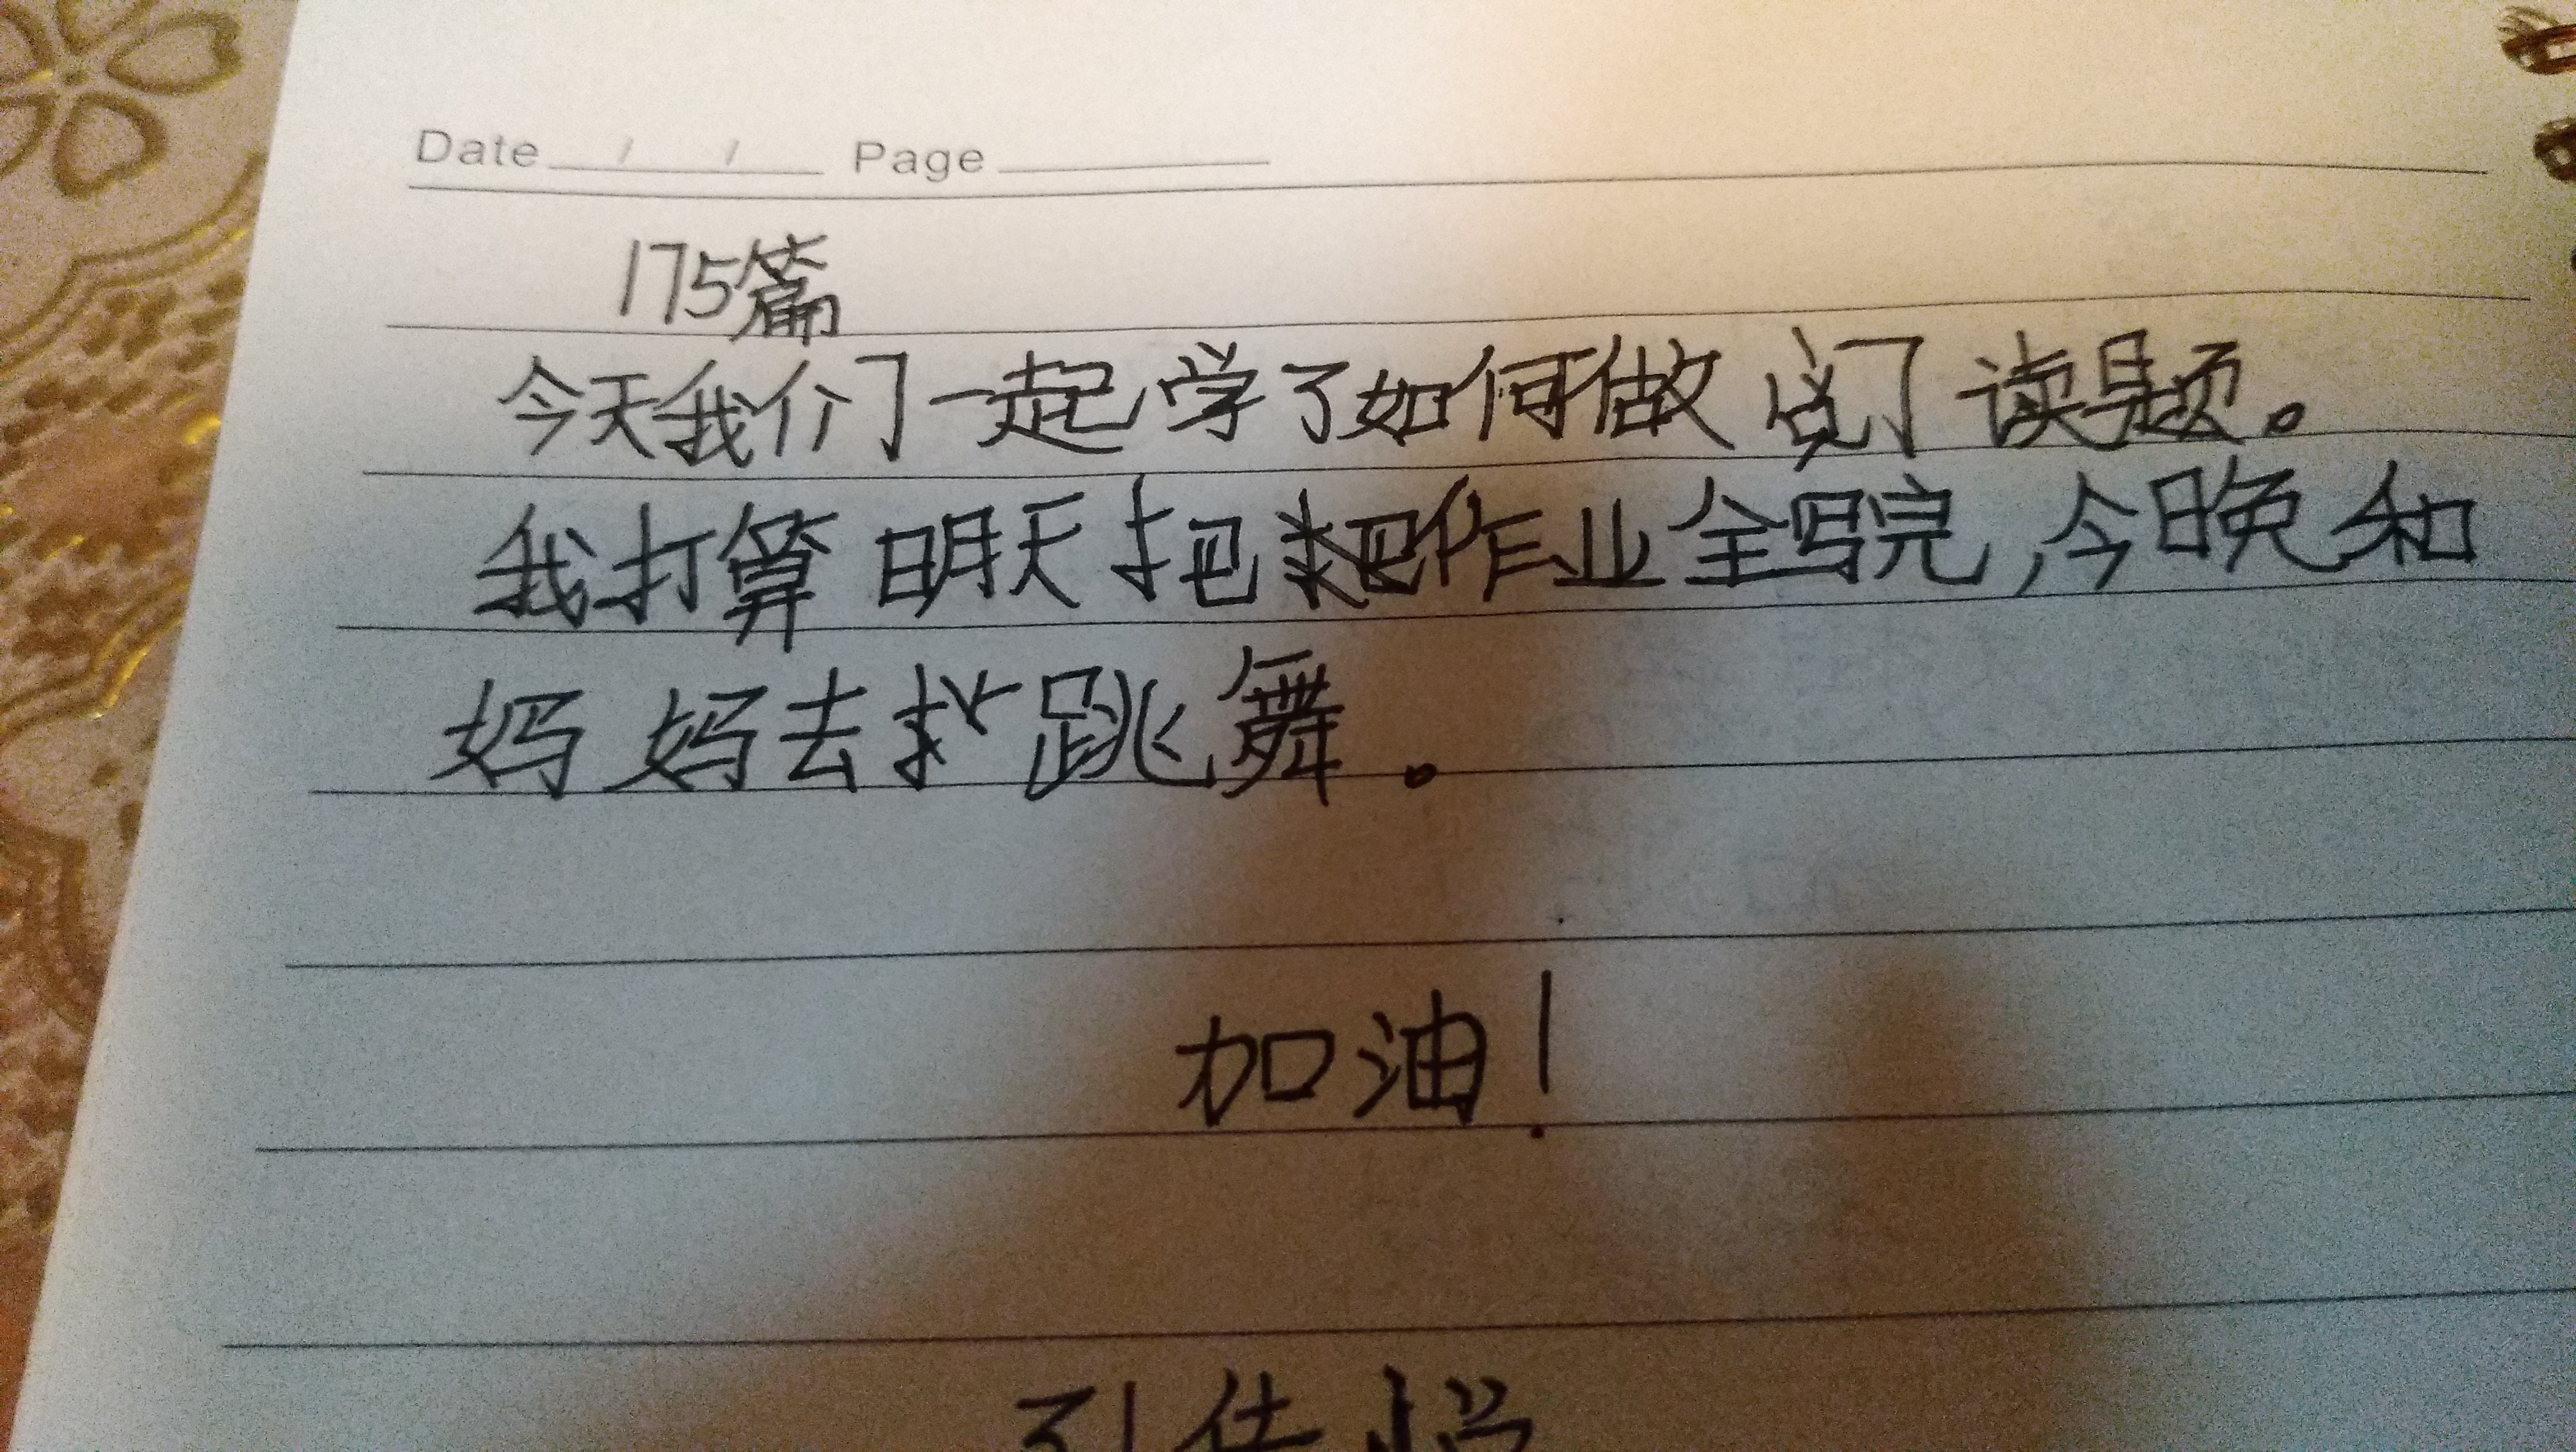 Date / / Page
175篇
今天我们一起学了如何做阅读题。
我打算明天把作业全写完,今晚和
妈妈去跳舞。
加油!